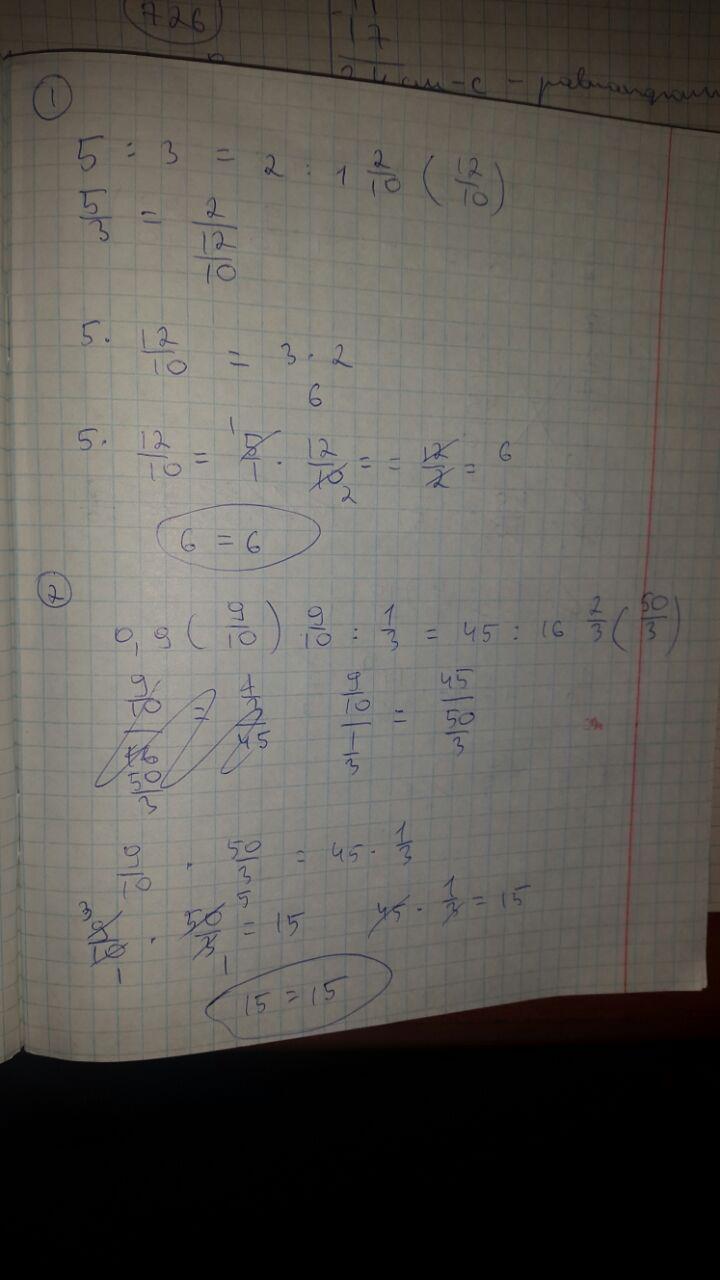 726
17
1
5 : 3 = 2 : 1 2/10 (12/10)
5/3 = 2/(12/10)
5 · 12/10 = 3 · 2
6
5 · 12/10 = 5/1 · 12/10 = = 12/2 = 6
1 2
6 = 6
2
0,9 (9/10) 9/10 : 1/3 = 45 : 16 2/3 (50/3)
(9/10)/(1/3) = 45/(50/3)
9/10 · 50/3 = 45 · 1/3
3 5
9/10 · 50/3 = 15 45 · 1/3 = 15
1 1
15 = 15